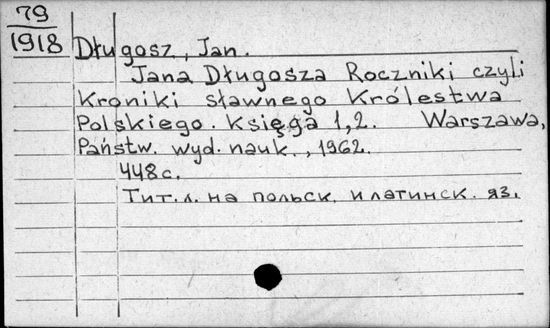 79
1918
Długosz, Jan.
Jana Długosza Roczniki czyli
Kroniki sławnego Królestwa
Polskiego. Księga 1,2. Warszawa,
Państw. wyd. nauk., 1962.
448 с.
Тит. л. на польск. и латинск. яз.